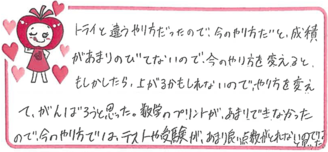 トライと違うやり方だったので、今のやり方だと、成績
があまりのびてないので今のやり方を変えると、
もしかしたら、上がるかもしれないので、やり方を変え
て、がんばろうと思った。数学のプリントが、あまりできなかった
ので、今のやり方では、テストや受験が、あまり良い点数がとれないのでは
と思った